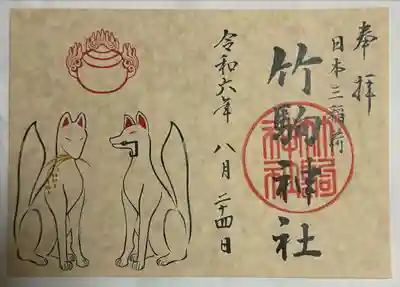 奉拝
日本三稲荷
竹駒神社
令和六年 八月二十四日